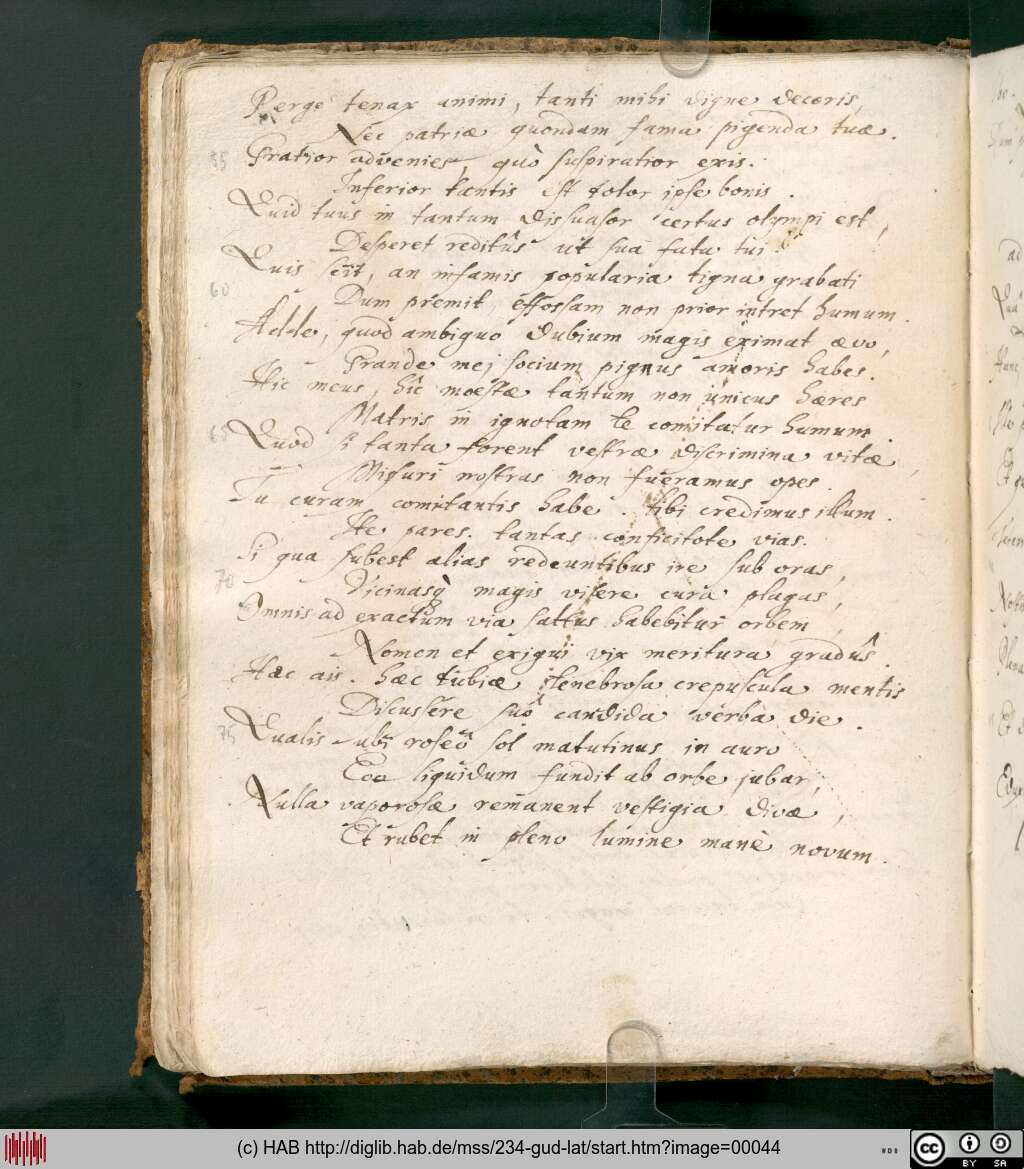 Perge tenax animi, tanti mihi digne decoris,
Nec patriæ quondam fama pigenda tuæ.
55 Gratior advenies, quò suspiratior exis.
Inferior tantis est dolor ipse bonis.
Quid tuus in tantum dissuasor certus olympi est,
Desperet reditûs ut sua fata tui?
Quis scit, an infamis popularia tigna grabati
60 Dum premit, effossam non prior intret humum.
Adde, quod ambiguo dubium magis eximat ævo,
Grande mej socium pignus amoris habes.
Hic meus, hîc moestæ tantum non unicus hæres
Matris in ignotam te comitatur humum.
65 Quod si tanta forent vestræ discrimina vitæ,
Misuri nostras non fueramus opes.
Tu curam comitantis habe. tibi credimus illum.
Ite pares. tantas conficitote vias.
Si qua subest alias redeuntibus ire sub oras,
70 Vicinasq̀ magis visere cura plagas,
Omnis ad exactum via saltus habebitur orbem,
Nomen et exigui vix meritura gradûs.
Hæc ais. hæc dubiæ tenebrosa crepuscula mentis
Discussere suô candida verba die.
75 Qualis ubi roseô sol matutinus in auro
Eoa liquidum fundit ab orbe jubar,
Nulla vaporosæ remanent vestigia divæ,
Et rubet in pleno lumine manè novum.
(c) HAB http://diglib.hab.de/mss/234-gud-lat/start.htm?image=00044
cc BY SA